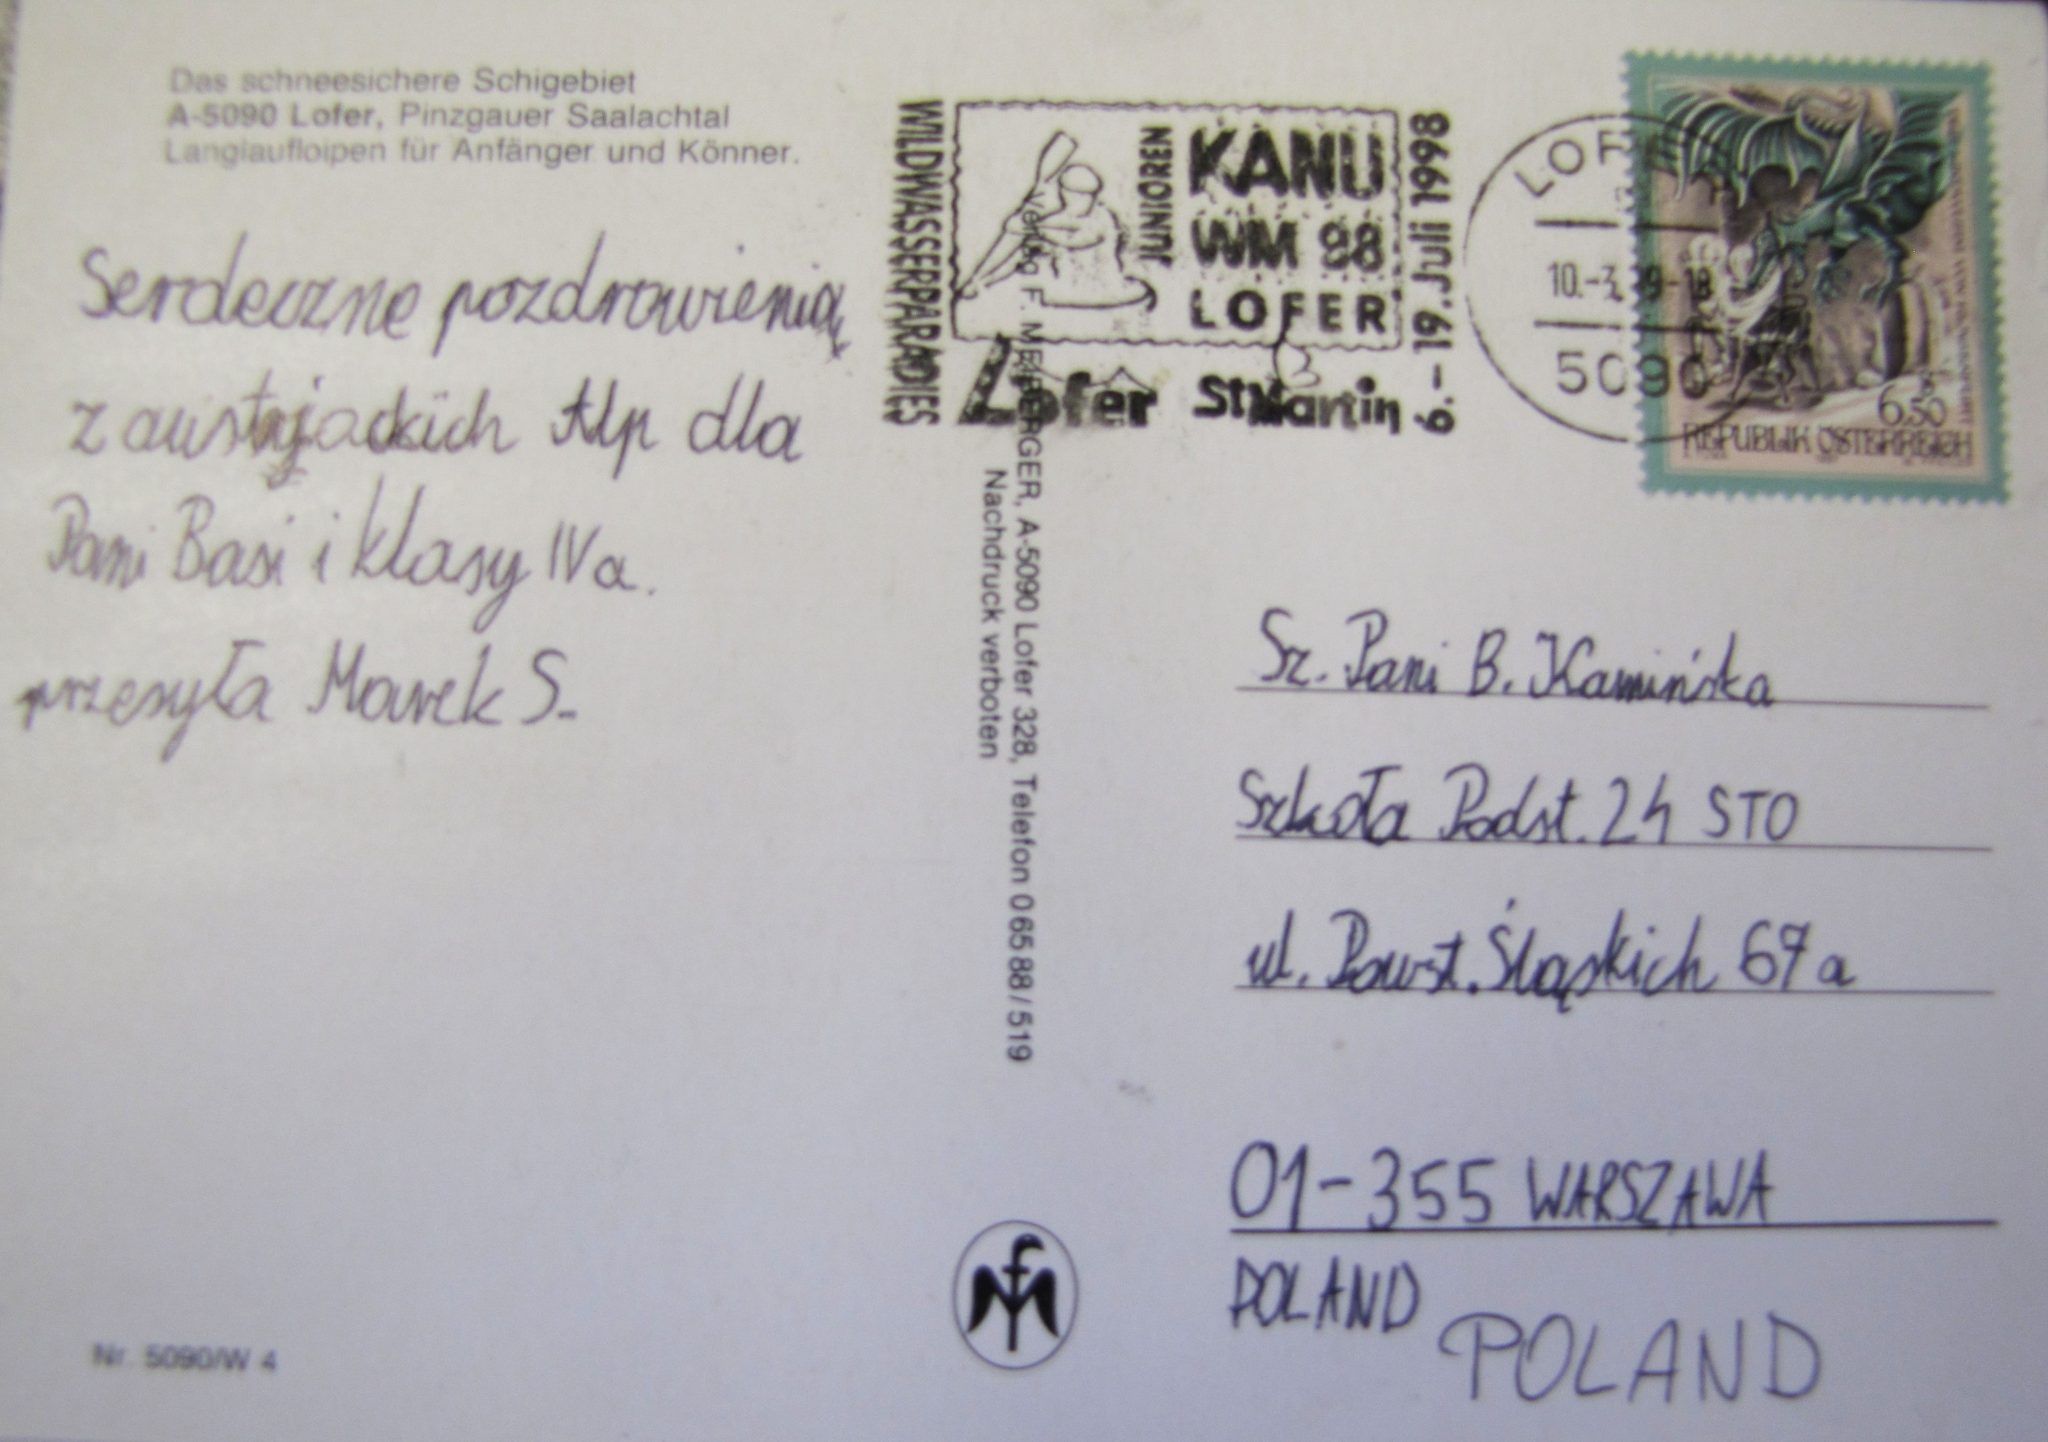 Das schneesichere Schigebiet
A-5090 Lofer, Pinzgauer Saalachtal
Langlaufloipen für Anfänger und Könner.
Serdeczne pozdrowienia
z austyjackich Alp dla
Pani Basi i klasy IVa.
przesyła Marek S.
Nr. 5090/W 4
WILDWASSERPARADIES
JUNIOREN
KANU
WM 98
LOFER
9. - 19. Juli 1998
Lofer St Martin
Verlag F. MEIBERGER, A-5090 Lofer 328, Telefon 0 65 88 / 519
Nachdruck verboten
LOFER
5090
6.50
REPUBLIK ÖSTERREICH
Sz. Pani B. Kamińska
Szkoła Podst. 24 STO
ul. Powst. Śląskich 67a
01-355 WARSZAWA
POLAND
POLAND